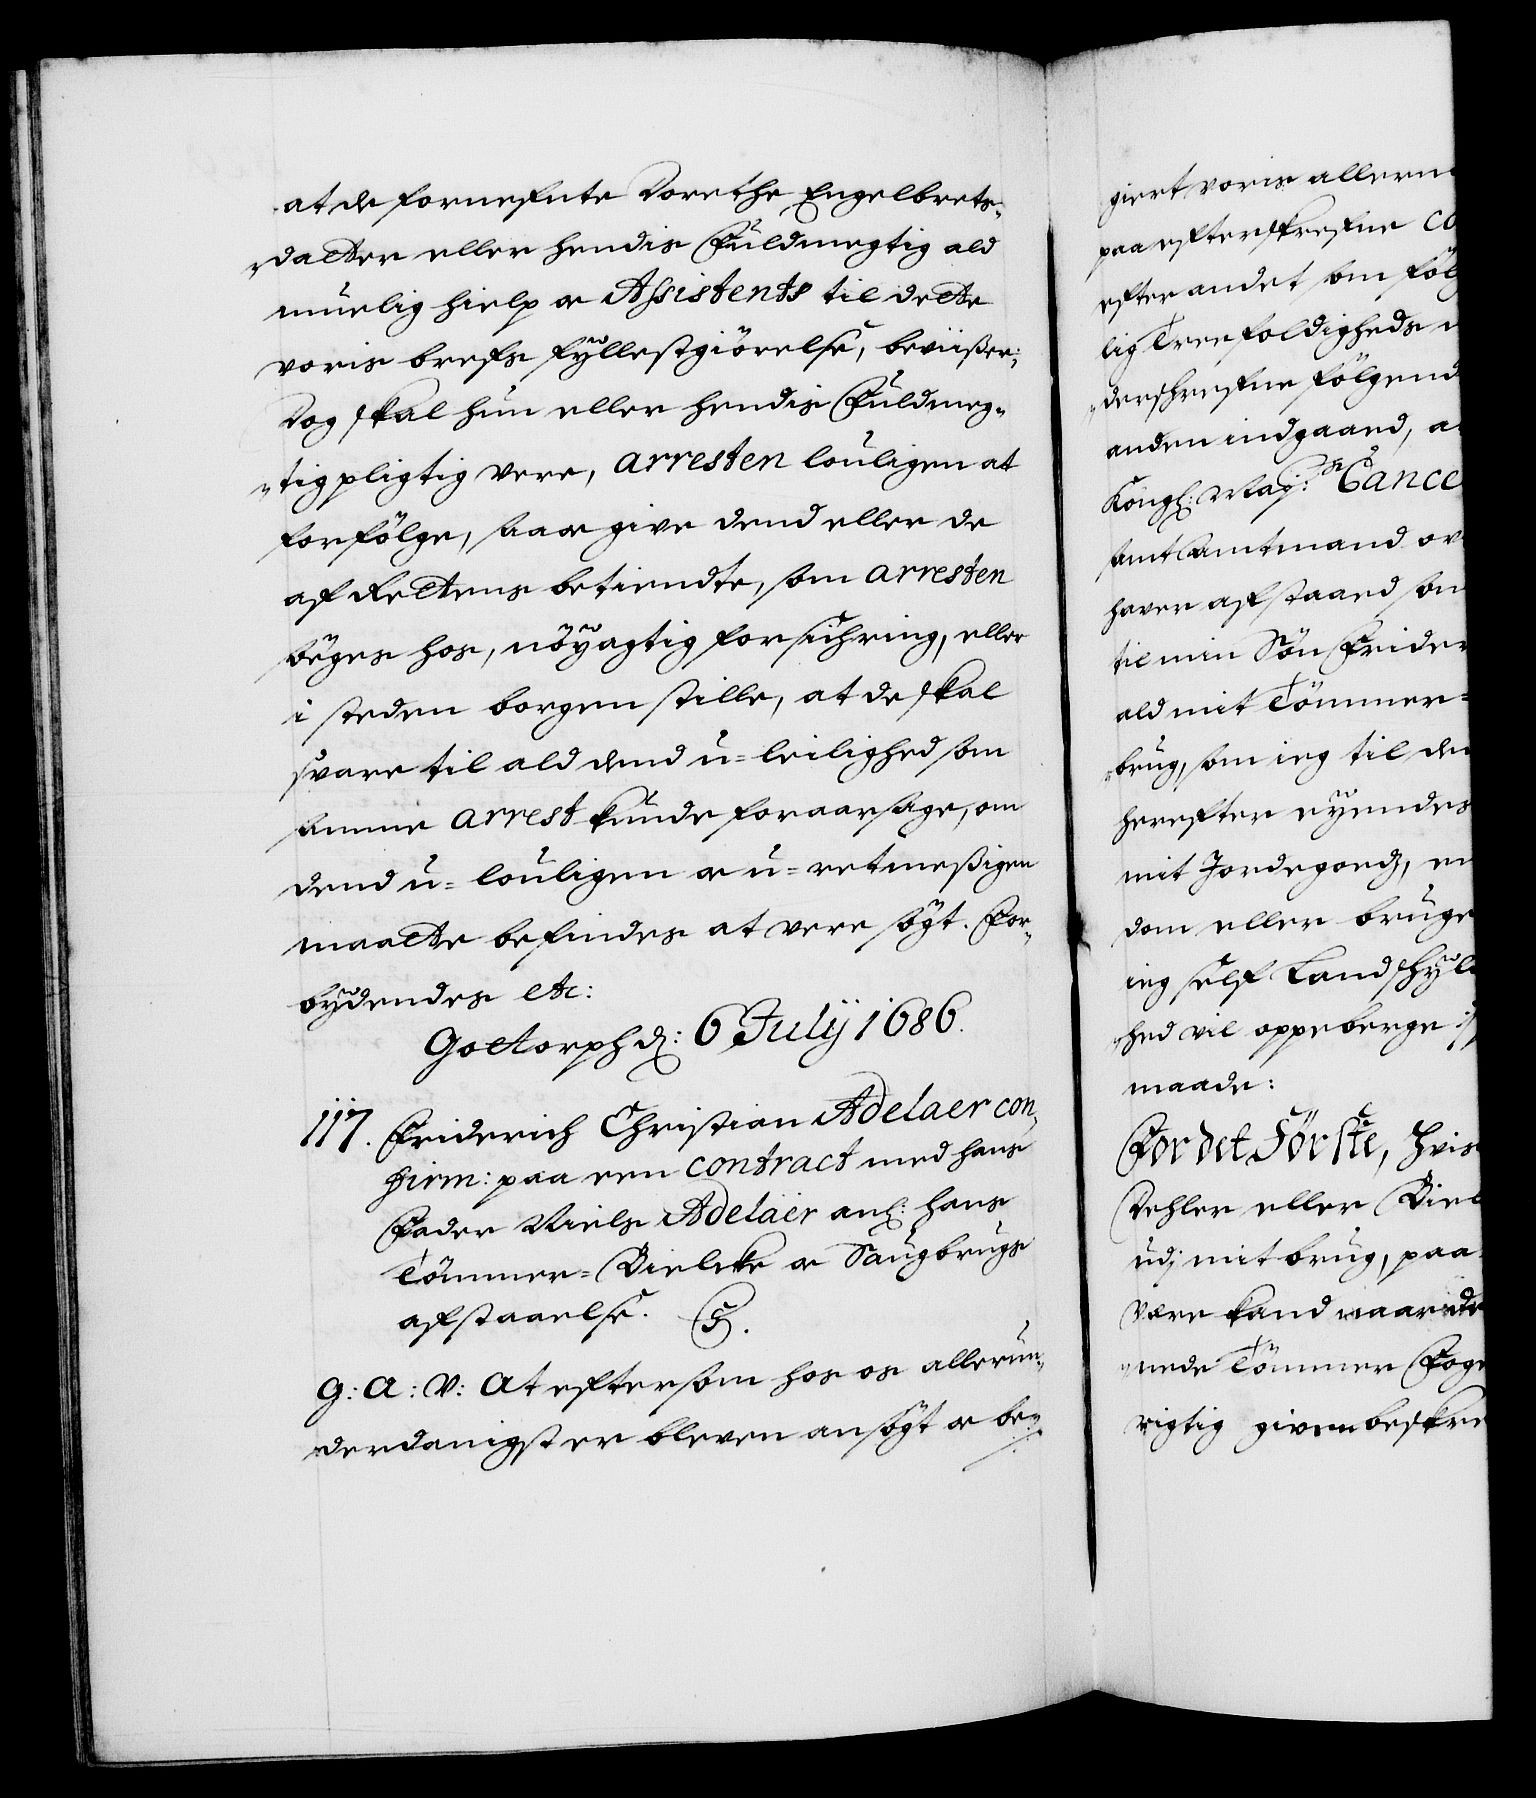 at de fornefnte Dorethe Engelbrets-
„datter eller hendis Fuldmegtig ald
muelig hielp oc Assistents til dette
voris brefs fyllestgiörelse, beviißer:
Dog skal hun eller hendis Fuldmeg-
„tig pligtig vere, arresten louligen at
forfölge, saa oc give dend eller de
af Rettens betiendte, som arresten
söges hos, nöyagtig forsichring, eller
i steden borgen stille, at de skal
svare til ald dend u-leilighed som
samme arrest kunde foraarsage, om
dend u-louligen oc u-retmeßigen
maatte befindes at vere sögt. For-
bydendes etc:
Gottorph d: 6 July 1686.
117. Friderich Christian Adelaer con-
firm: paa een contract med hans
Fader Niels Adelaer anl: hans
Tömmer-Dielcke oc Saugbrugs
afstaaelse. S.
G: A: V: At eftersom hos os allerun-
derdanigst er bleven ansögt oc be-
giert voris allern
paa efterskrefne co
efter andet som föl
lig Treefoldigheds n
„derskrefne fölgend
anden indgaaed, a
Kongl: May: Cance
samt Amtmand ov
haver afstaaed som
til min Sön Frider
ald mit Tömmer-
„brug, som ieg til den
herefter eyendes
mit Jordegods, en
dom eller bruge
ieg self Landskyl
„hed vil oppeberge
maade:
For det Förste, Hvis
Dehler eller Diel
udj mit brug, paa
være kand naar de
„nede Tömmer Foge
rigtig given beskre